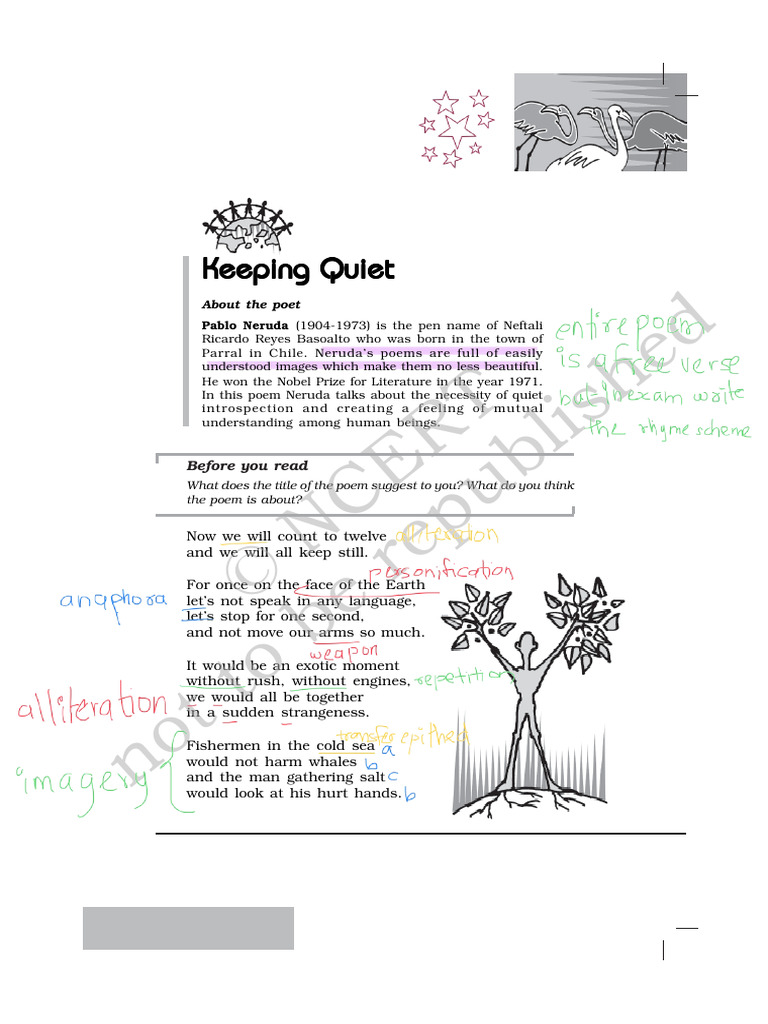 Keeping Quiet
About the poet
Pablo Neruda (1904-1973) is the pen name of Neftali
Ricardo Reyes Basoalto who was born in the town of
Parral in Chile. Neruda's poems are full of easily
understood images which make them no less beautiful.
He won the Nobel Prize for Literature in the year 1971.
In this poem Neruda talks about the necessity of quiet
introspection and creating a feeling of mutual
understanding among human beings.
entire poem
is a free verse
bat in exam write
the rhyme scheme
Before you read
What does the title of the poem suggest to you? What do you think
the poem is about?
Now we will count to twelve alliteration
and we will all keep still.
personification
For once on the face of the Earth
anaphora let's not speak in any language,
let's stop for one second,
and not move our arms so much.
weapon
It would be an exotic moment
without rush, without engines, repetition
alliteration we would all be together
in a sudden strangeness.
transfer epithed
Fishermen in the cold sea a
would not harm whales b
imagery and the man gathering salt c
would look at his hurt hands. b
© NCERT
not to be republished